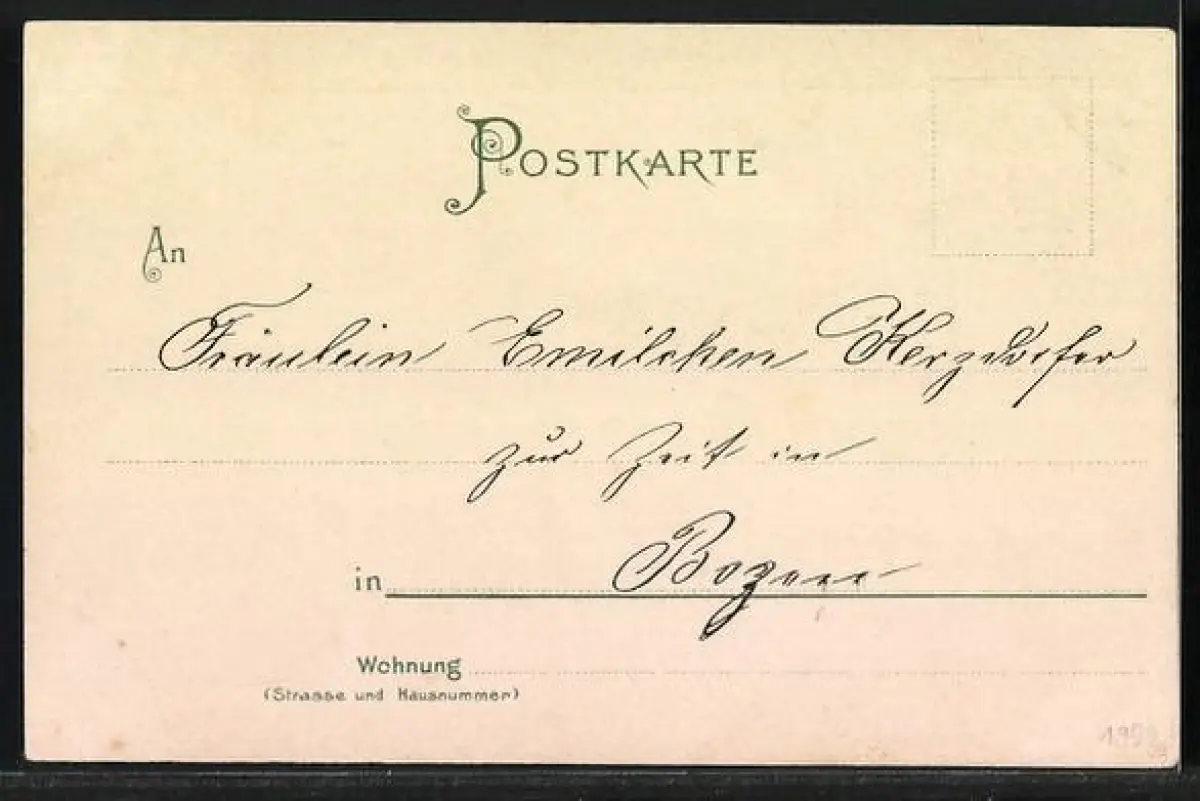 POSTKARTE
An
Fräulein Emilchen Herzdorfer
zur Zeit in
in Bozen
Wohnung
(Strasse und Hausnummer)